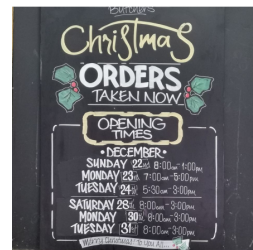 Butchers
Christmas
ORDERS
TAKEN NOW
OPENING
TIMES
• DECEMBER •
SUNDAY 22nd 8:00am-1:00pm
MONDAY 23rd 7:00am-5:00pm
TUESDAY 24th 5:30am-3:00pm
SATURDAY 28th 8:00am-3:00pm
MONDAY 30th 8:00am-3:00pm
TUESDAY 31st 8:00am-3:00pm
Merry Christmas To You All...